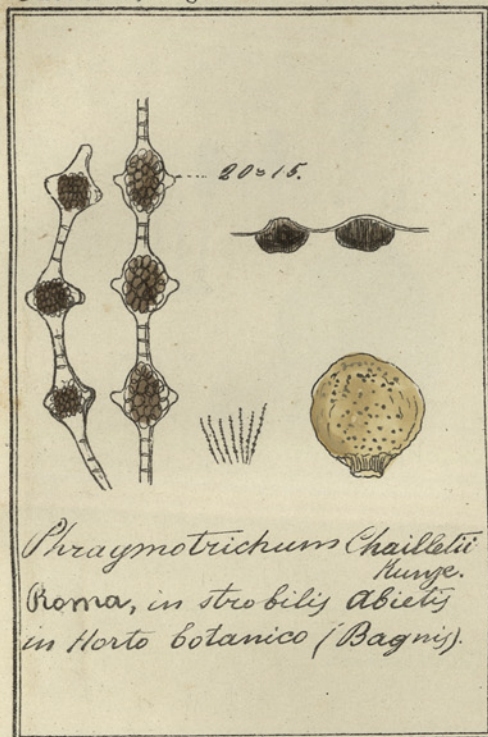 20≈15.
Phragmotrichum Chailletii
Kunze.
Roma, in strobilis Abietis
in Horto botanico (Bagnis).